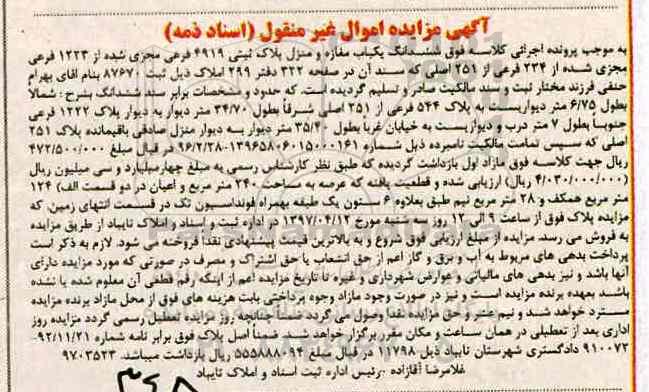 آگهی مزایده اموال غیر منقول (اسناد ذمه)
به موجب پرونده اجرائی کلاسه فوق ششدانگ یکباب مغازه و منزل پلاک ثبتی ۴۹۱۹ فرعی مجزی شده از ۱۲۲۳ فرعی
مجزی شده از ۲۳۴ فرعی از ۲۵۱ اصلی که سند آن در صفحه ۳۲۲ دفتر ۲۹۹ املاک ذیل ثبت ۸۷۶۷۰ بنام اقای بهرام
حنفی فرزند مختار ثبت و سند مالکیت صادر و تسلیم گردیده است. که حدود و مشخصات برابر سند ششدانگ بشرح : شمالا
بطول ۶/۷۵ متر دیواریست به پلاک ۵۴۴ فرعی از ۲۵۱ اصلی شرقاً بطول ۳۴/۷۰ متر دیوار به دیوار پلاک ۱۲۲۲ فرعی
جنوبا بطول ۷ متر درب و دیواریست به خیابان غربا بطول ۳۵/۴۰ متر دیوار به دیوار منزل صادقی باقیمانده پلاک ۲۵۱
اصلی که سپس تمامت مالکیت نامبرده ذیل شماره ۱۳۹۶۵۸۰۶۰۱۵۰۰۰۱۶۱-۹۶/۲/۲۸ در قبال مبلغ ۴۷۲/۵۰۰/۰۰۰
ریال جهت کلاسه فوق مازاد اول بازداشت گردیده که طبق نظر کارشناس رسمی به مبلغ چهارمیلیارد و سی میلیون ریال
(۴/۰۳۰/۰۰۰/۰۰۰ ریال) ارزیابی شده و قطعیت یافته که عرصه به مساحت ۲۴۰ متر مربع و اعیان در دو قسمت الف) ۱۲۴
متر مربع همکف و ۲۸ متر مربع نیم طبق بعلاوه ۶ ستون یک طبقه بهمراه فونداسیون تک در قسمت انتهای زمین، که
مزایده پلاک فوق از ساعت ۹ الی ۱۲ روز سه شنبه مورخ ۱۳۹۷/۰۴/۱۲ در اداره ثبت و اسناد و املاک تایباد از طریق مزایده
به فروش می رسد. مزایده از مبلغ ارزیابی فوق شروع و به بالاترین قیمت پیشنهادی نقدا فروخته می شود. لازم به ذکر است
پرداخت بدهی های مربوط به آب و برق و گاز اعم از حق انشعاب یا حق اشتراک و مصرف در صورتی که مورد مزایده دارای
آنها باشد و نیز بدهی های مالیاتی و عوارض شهرداری و غیره تا تاریخ مزایده اعم از اینکه رقم قطعی آن معلوم شده یا نشده
باشد بعهده برنده مزایده است و نیز در صورت وجود مازاد وجوه پرداختی بابت هزینه های فوق از محل مازاد برنده مزایده
مسترد خواهد شد و نیم عشر و حق مزایده نقدا وصول می گردد ضمناً چنانچه روز مزایده تعطیل رسمی گردد مزایده روز
اداری بعد از تعطیلی در همان ساعت و مکان مقرر برگزار خواهد شد. ضمناً اصل پلاک فوق برابر نامه شماره ۹۲/۱۱/۲۱-
۹۱۰۰۷۳ دادگستری شهرستان تایباد ذیل ۱۱۷۹۸ در قبال مبلغ ۵۵۵۸۸۸۰۹۴ ریال بازداشت میباشد. ۹۷۰۳۵۲۳
غلامرضا آقازاده -رئیس اداره ثبت اسناد و املاک تایباد